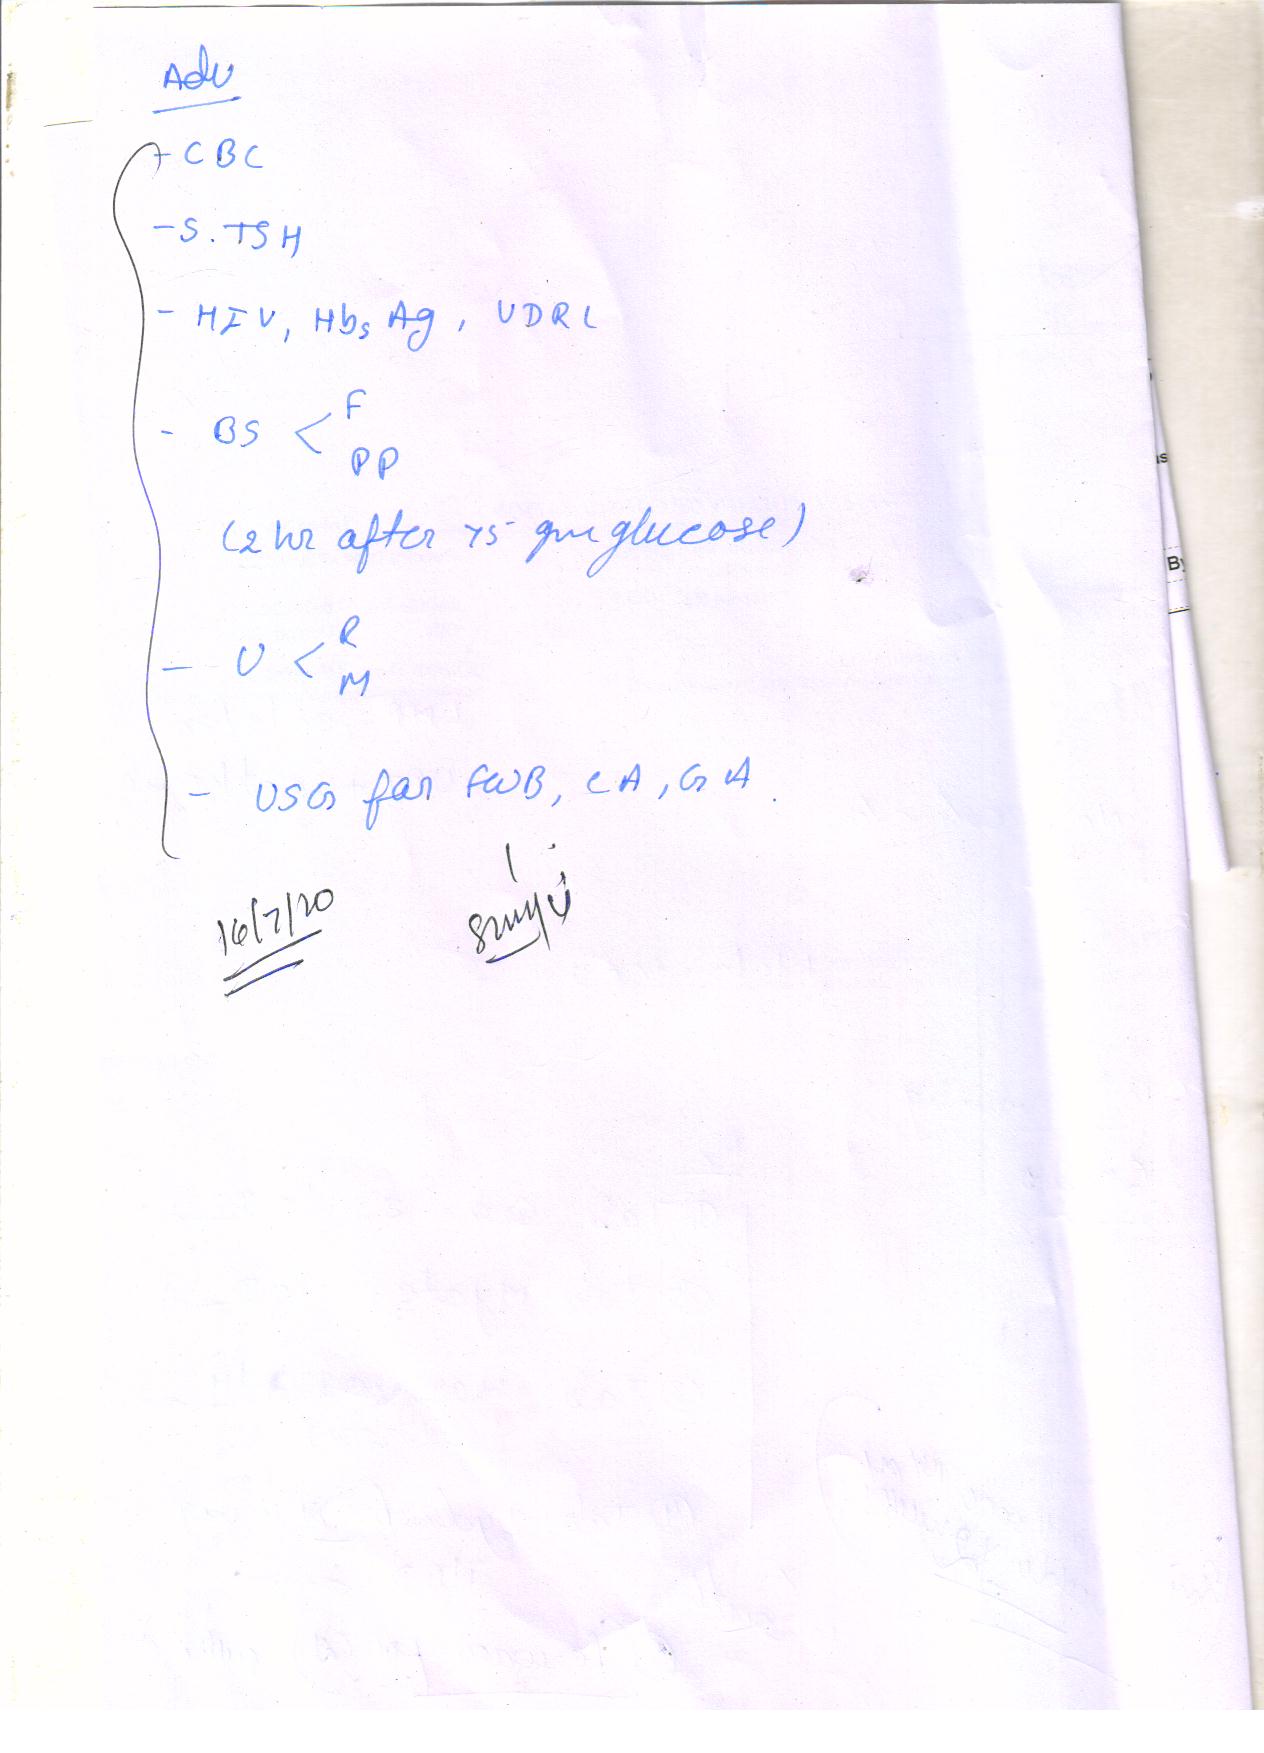 Adv
- CBC
- S. TSH
- HIV, HbsAg, VDRL
- BS < F
PP
(2 hr after 75 gm glucose)
- U < R
M
- USG for FWB, CA, GA.
16/7/20
By